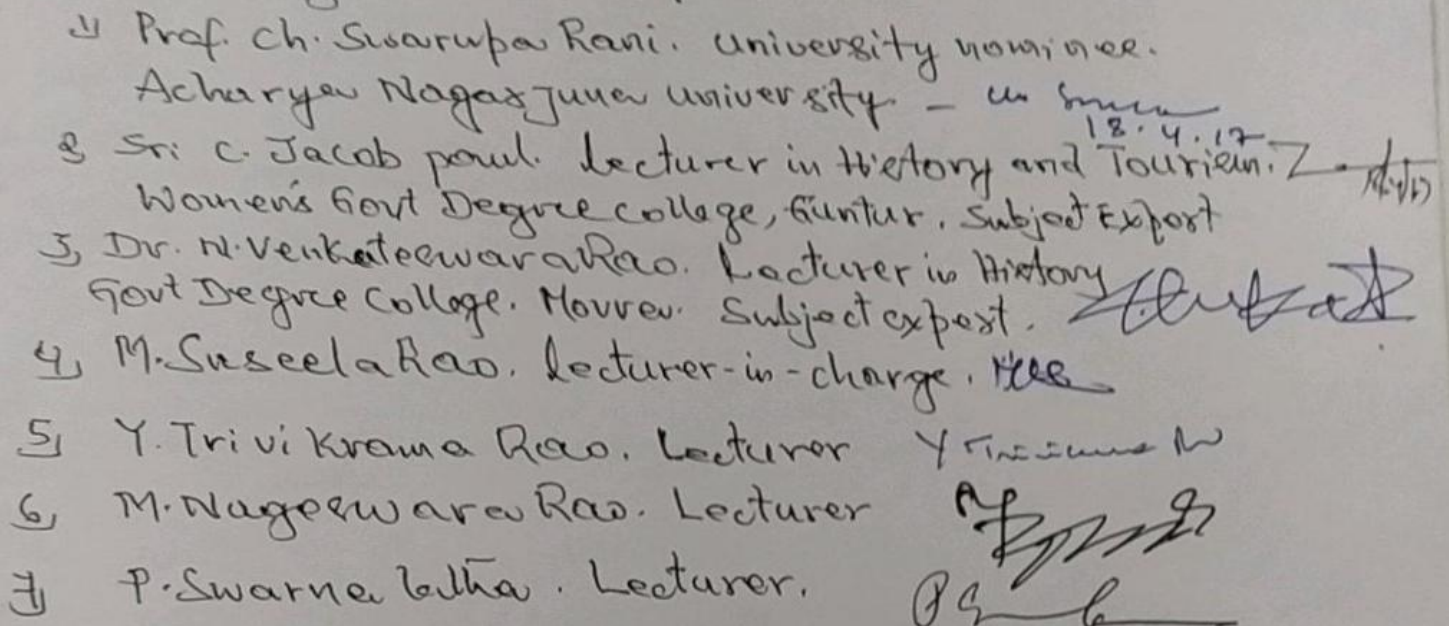 1) Prof. Ch. Swarupa Rani. University nominee.
Acharya Nagarjuna University. -
18.4.17
2) Sri C. Jacob paul. Lecturer in History and Tourism.
Women's Govt Degree College, Guntur. Subject Expert
3, Dr. N. Venkateswara Rao. Lecturer in History
Govt Degree College. Movva. Subject expert.
4, M. Suseela Rao. Lecturer-in-charge.
5, Y. Trivi Krama Rao. Lecturer
6, M. Nageswara Rao. Lecturer
7, P. Swarna latha. Lecturer.